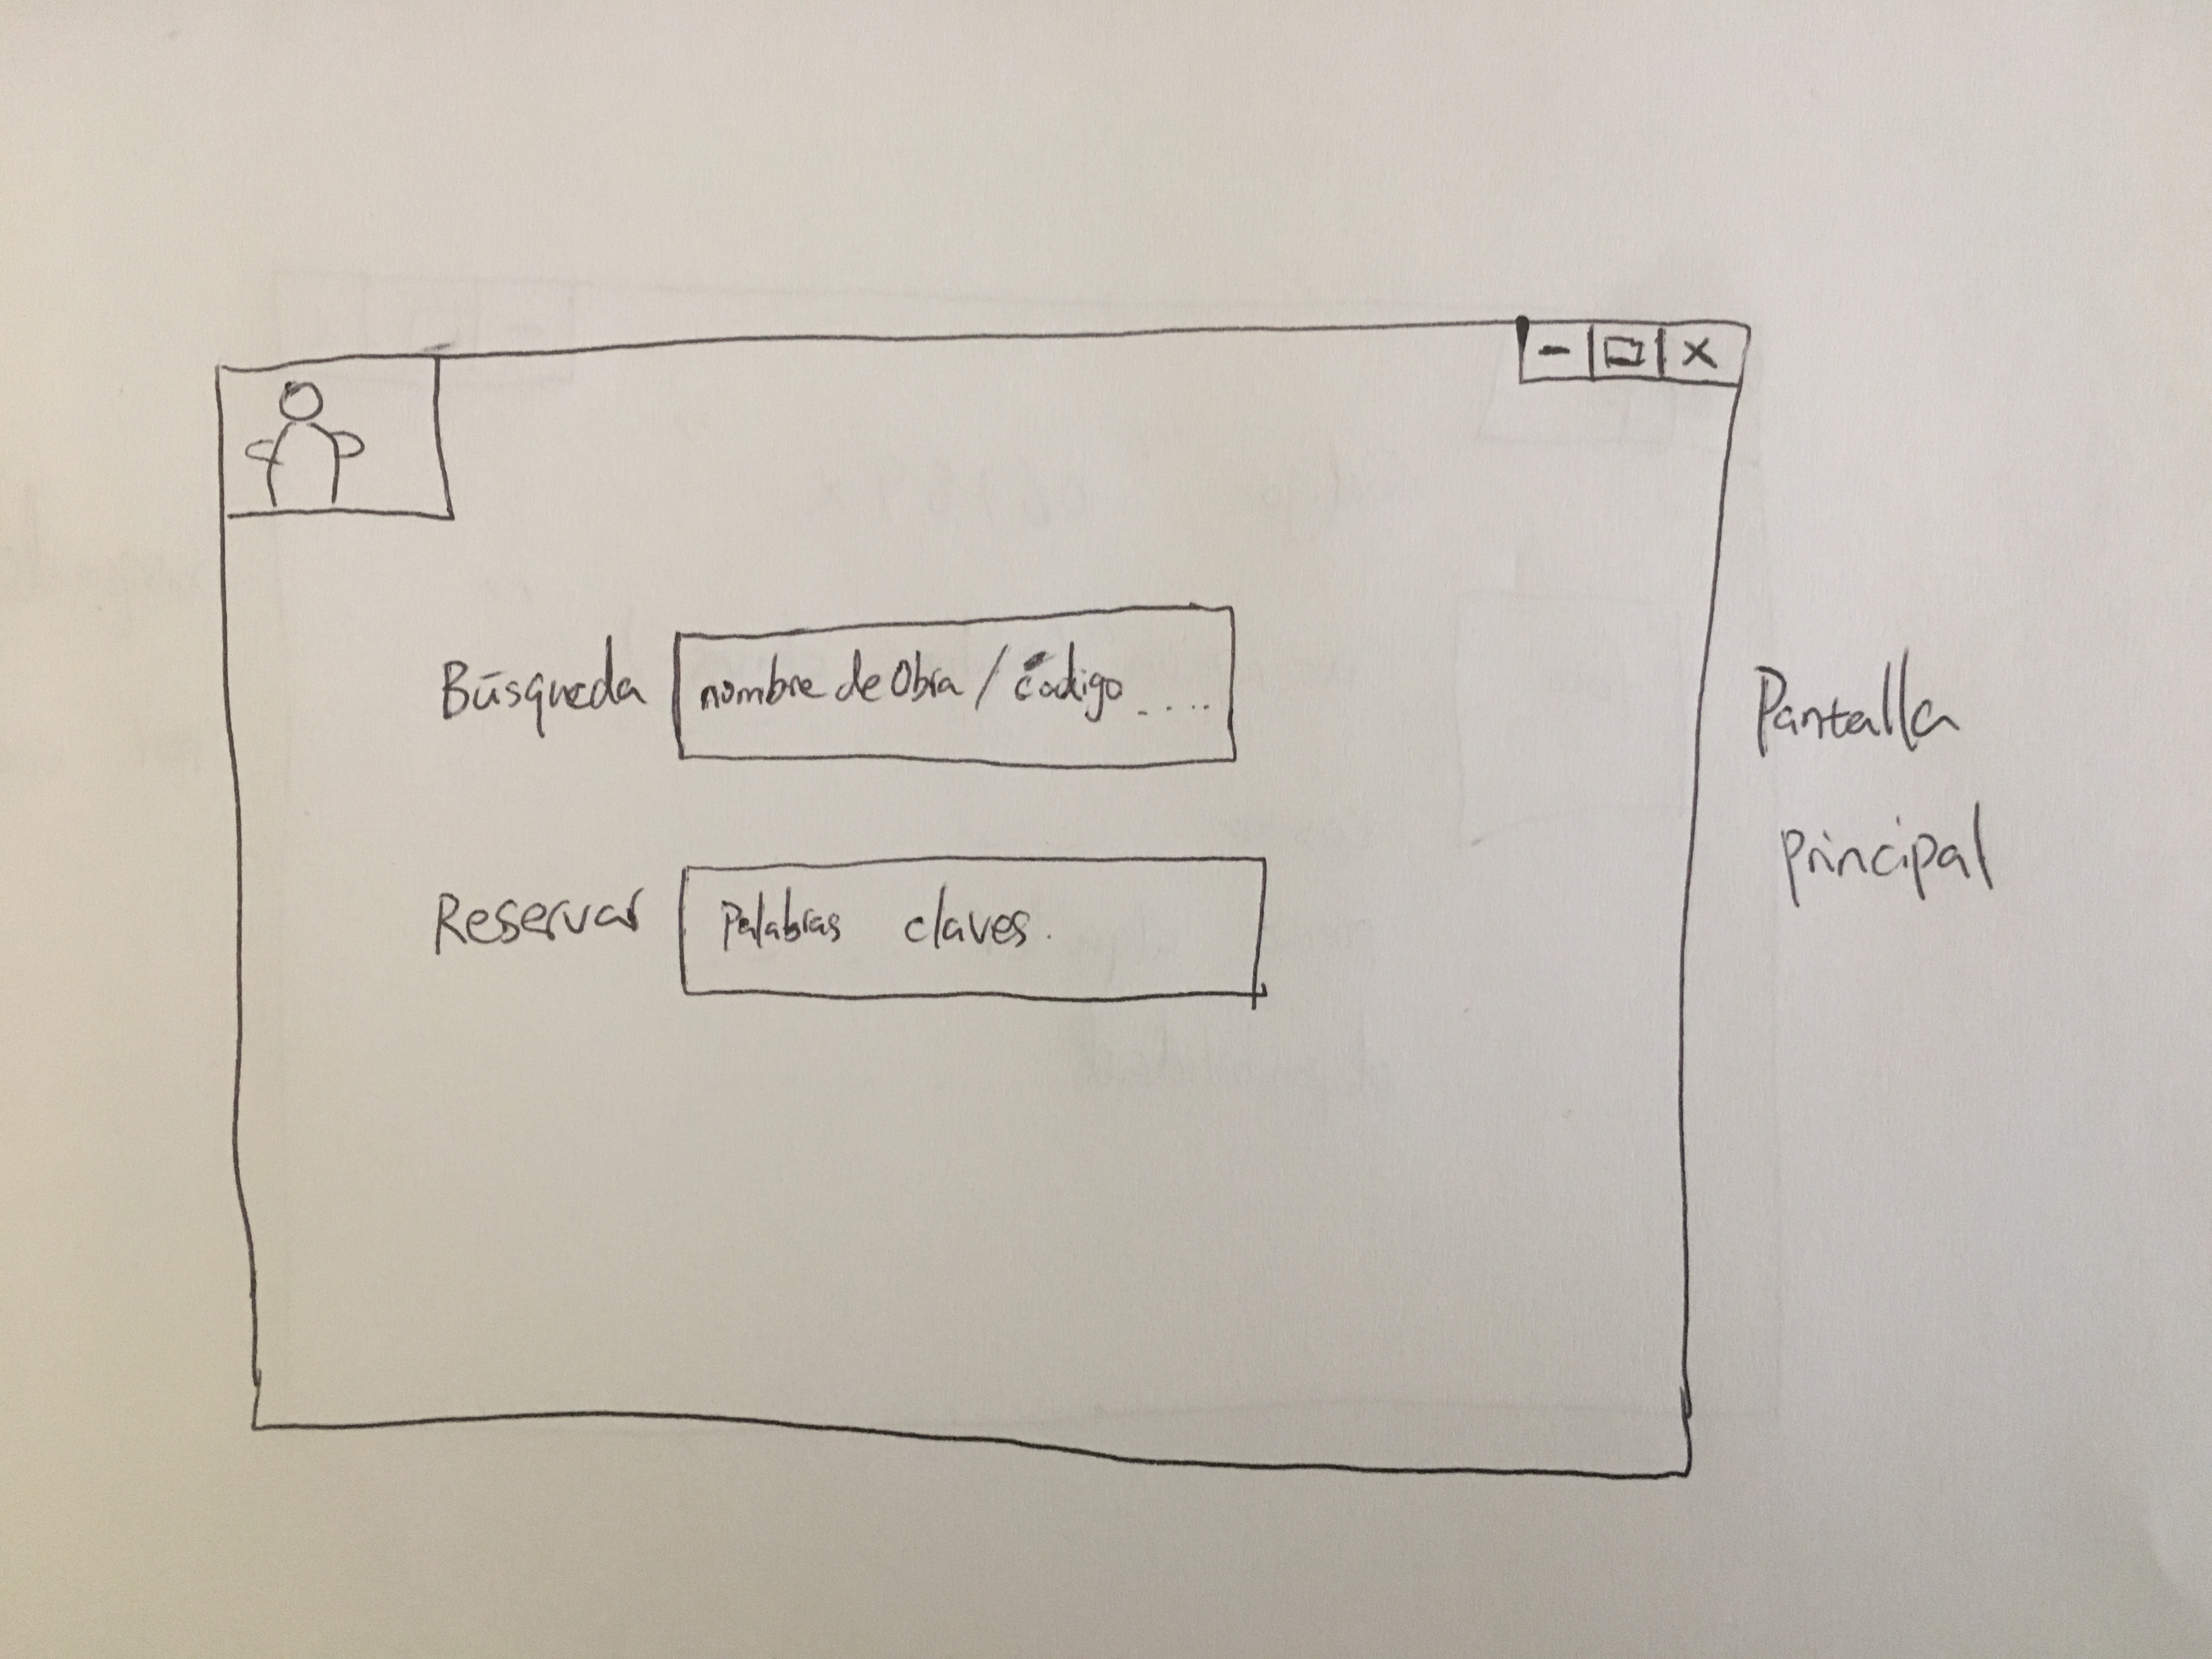 Búsqueda nombre de Obra / Código ....
Reservar Palabras claves.
Pantalla
Principal